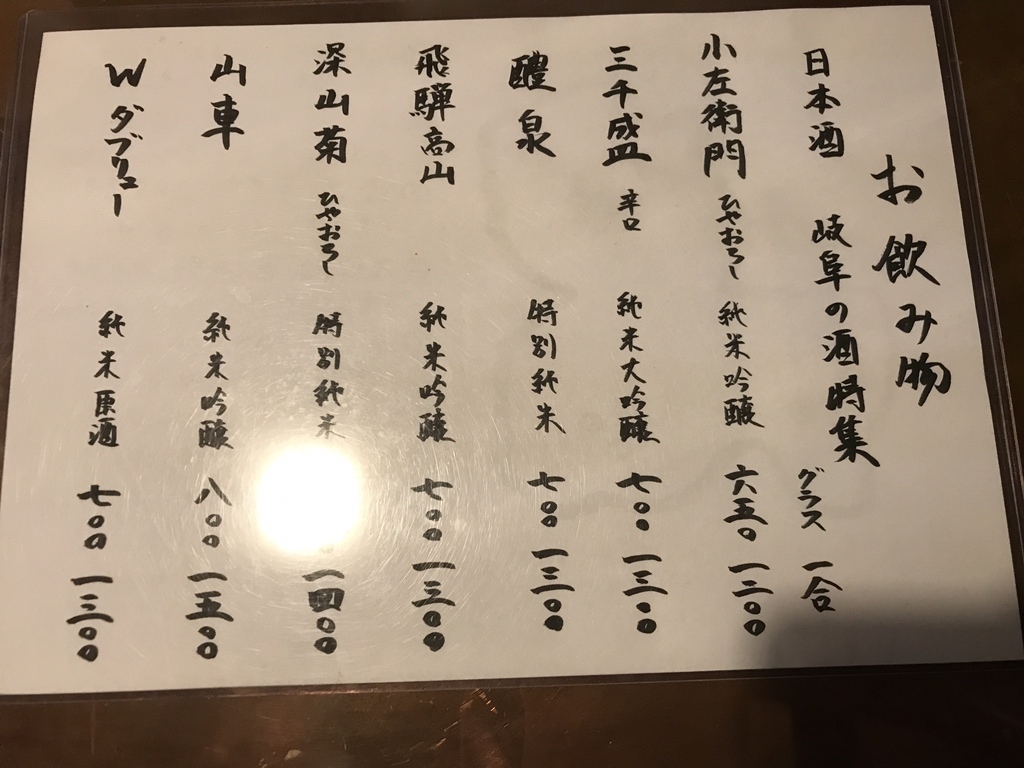 お飲み物
日本酒 岐阜の酒特集 グラス 一合
小左衛門 ひやおろし 純米吟醸 六五〇 一二〇〇
三千盛 辛口 純米大吟醸 七〇〇 一三〇〇
醴泉 特別純米 七〇〇 一三〇〇
飛騨高山 純米吟醸 七〇〇 一三〇〇
深山菊 ひやおろし 特別純米 一四〇〇
山車 純米吟醸 八〇〇 一五〇〇
W ダブリュー 純米原酒 七〇〇 一三〇〇